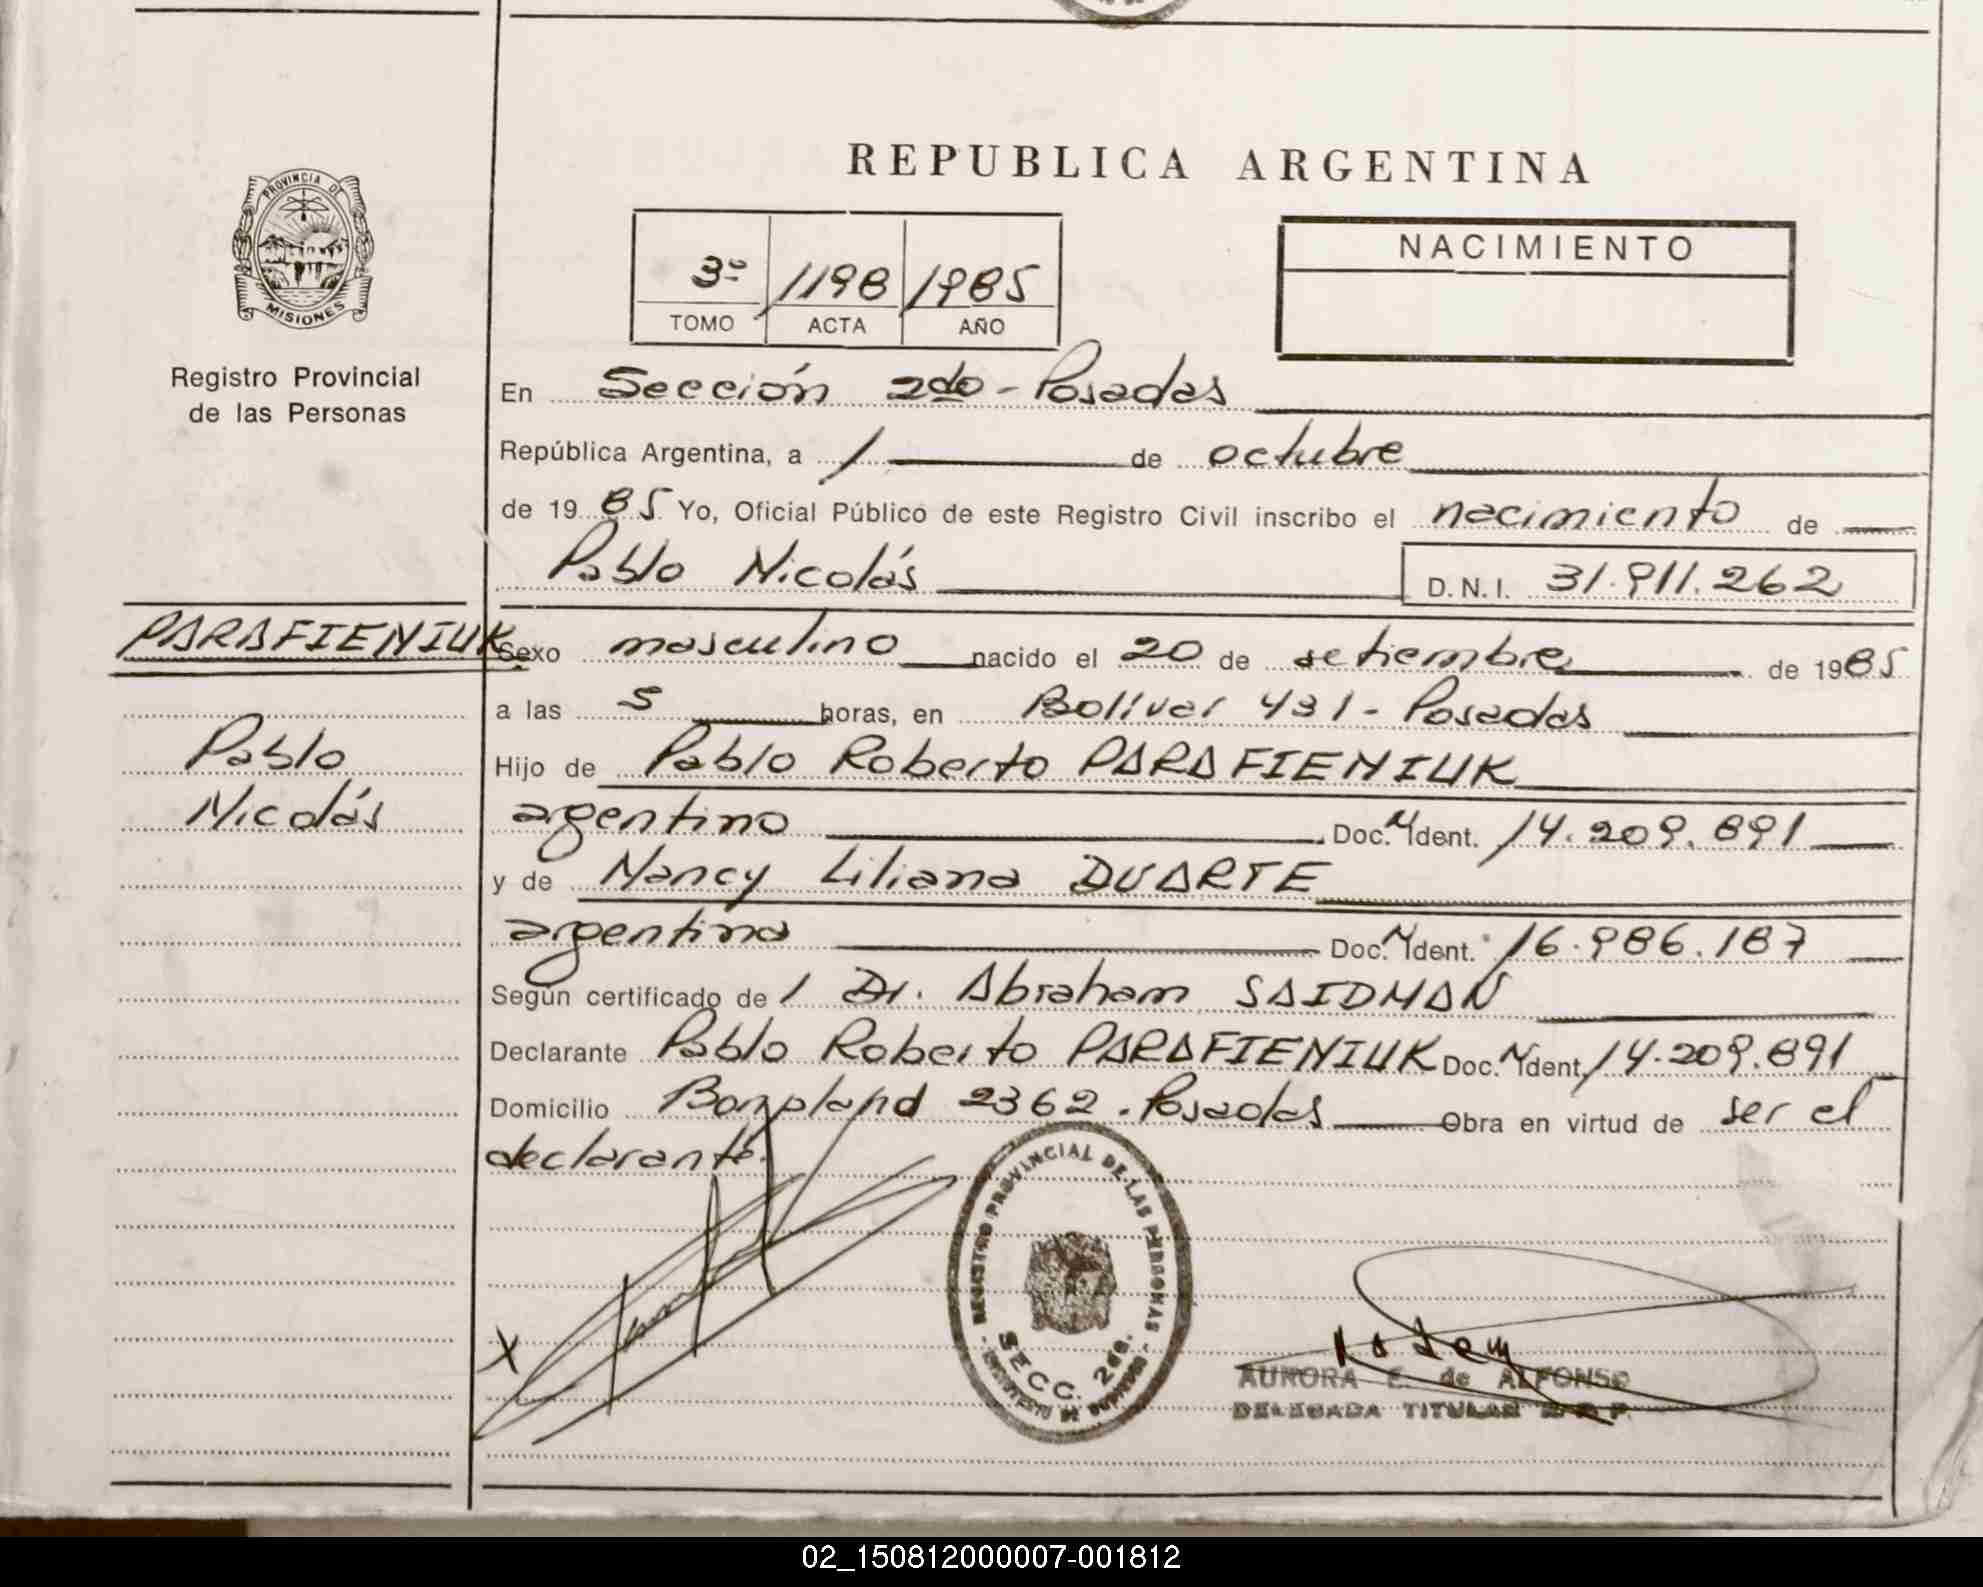 REPUBLICA ARGENTINA
PROVINCIA DE
MISIONES
Registro Provincial
de las Personas
3º 1198 1985
TOMO ACTA AÑO
NACIMIENTO
En Sección 2do - Posadas
República Argentina, a 1 de octubre
de 1985 Yo, Oficial Público de este Registro Civil inscribo el nacimiento de
Pablo Nicolás D.N.I. 31.911.262
PARAFIENIUK
Pablo
Nicolás
Sexo masculino nacido el 20 de setiembre de 1985
a las 5 horas, en Bolívar 431 - Posadas
Hijo de Pablo Roberto PARAFIENIUK
argentino Doc. N Ident. 14.209.891
y de Nancy Liliana DUARTE
argentina Doc. N Ident. 16.986.187
Según certificado de / Dr. Abraham SAIDMAN
Declarante Pablo Roberto PARAFIENIUK Doc. N Ident. 14.209.891
Domicilio Bonpland 2362. Posadas Obra en virtud de ser el
declarante.
REGISTRO PROVINCIAL DE LAS PERSONAS
SECC. 2da.
X
AURORA E. de ALFONSO
DELEGADA TITULAR R.P.P.
02_150812000007-001812